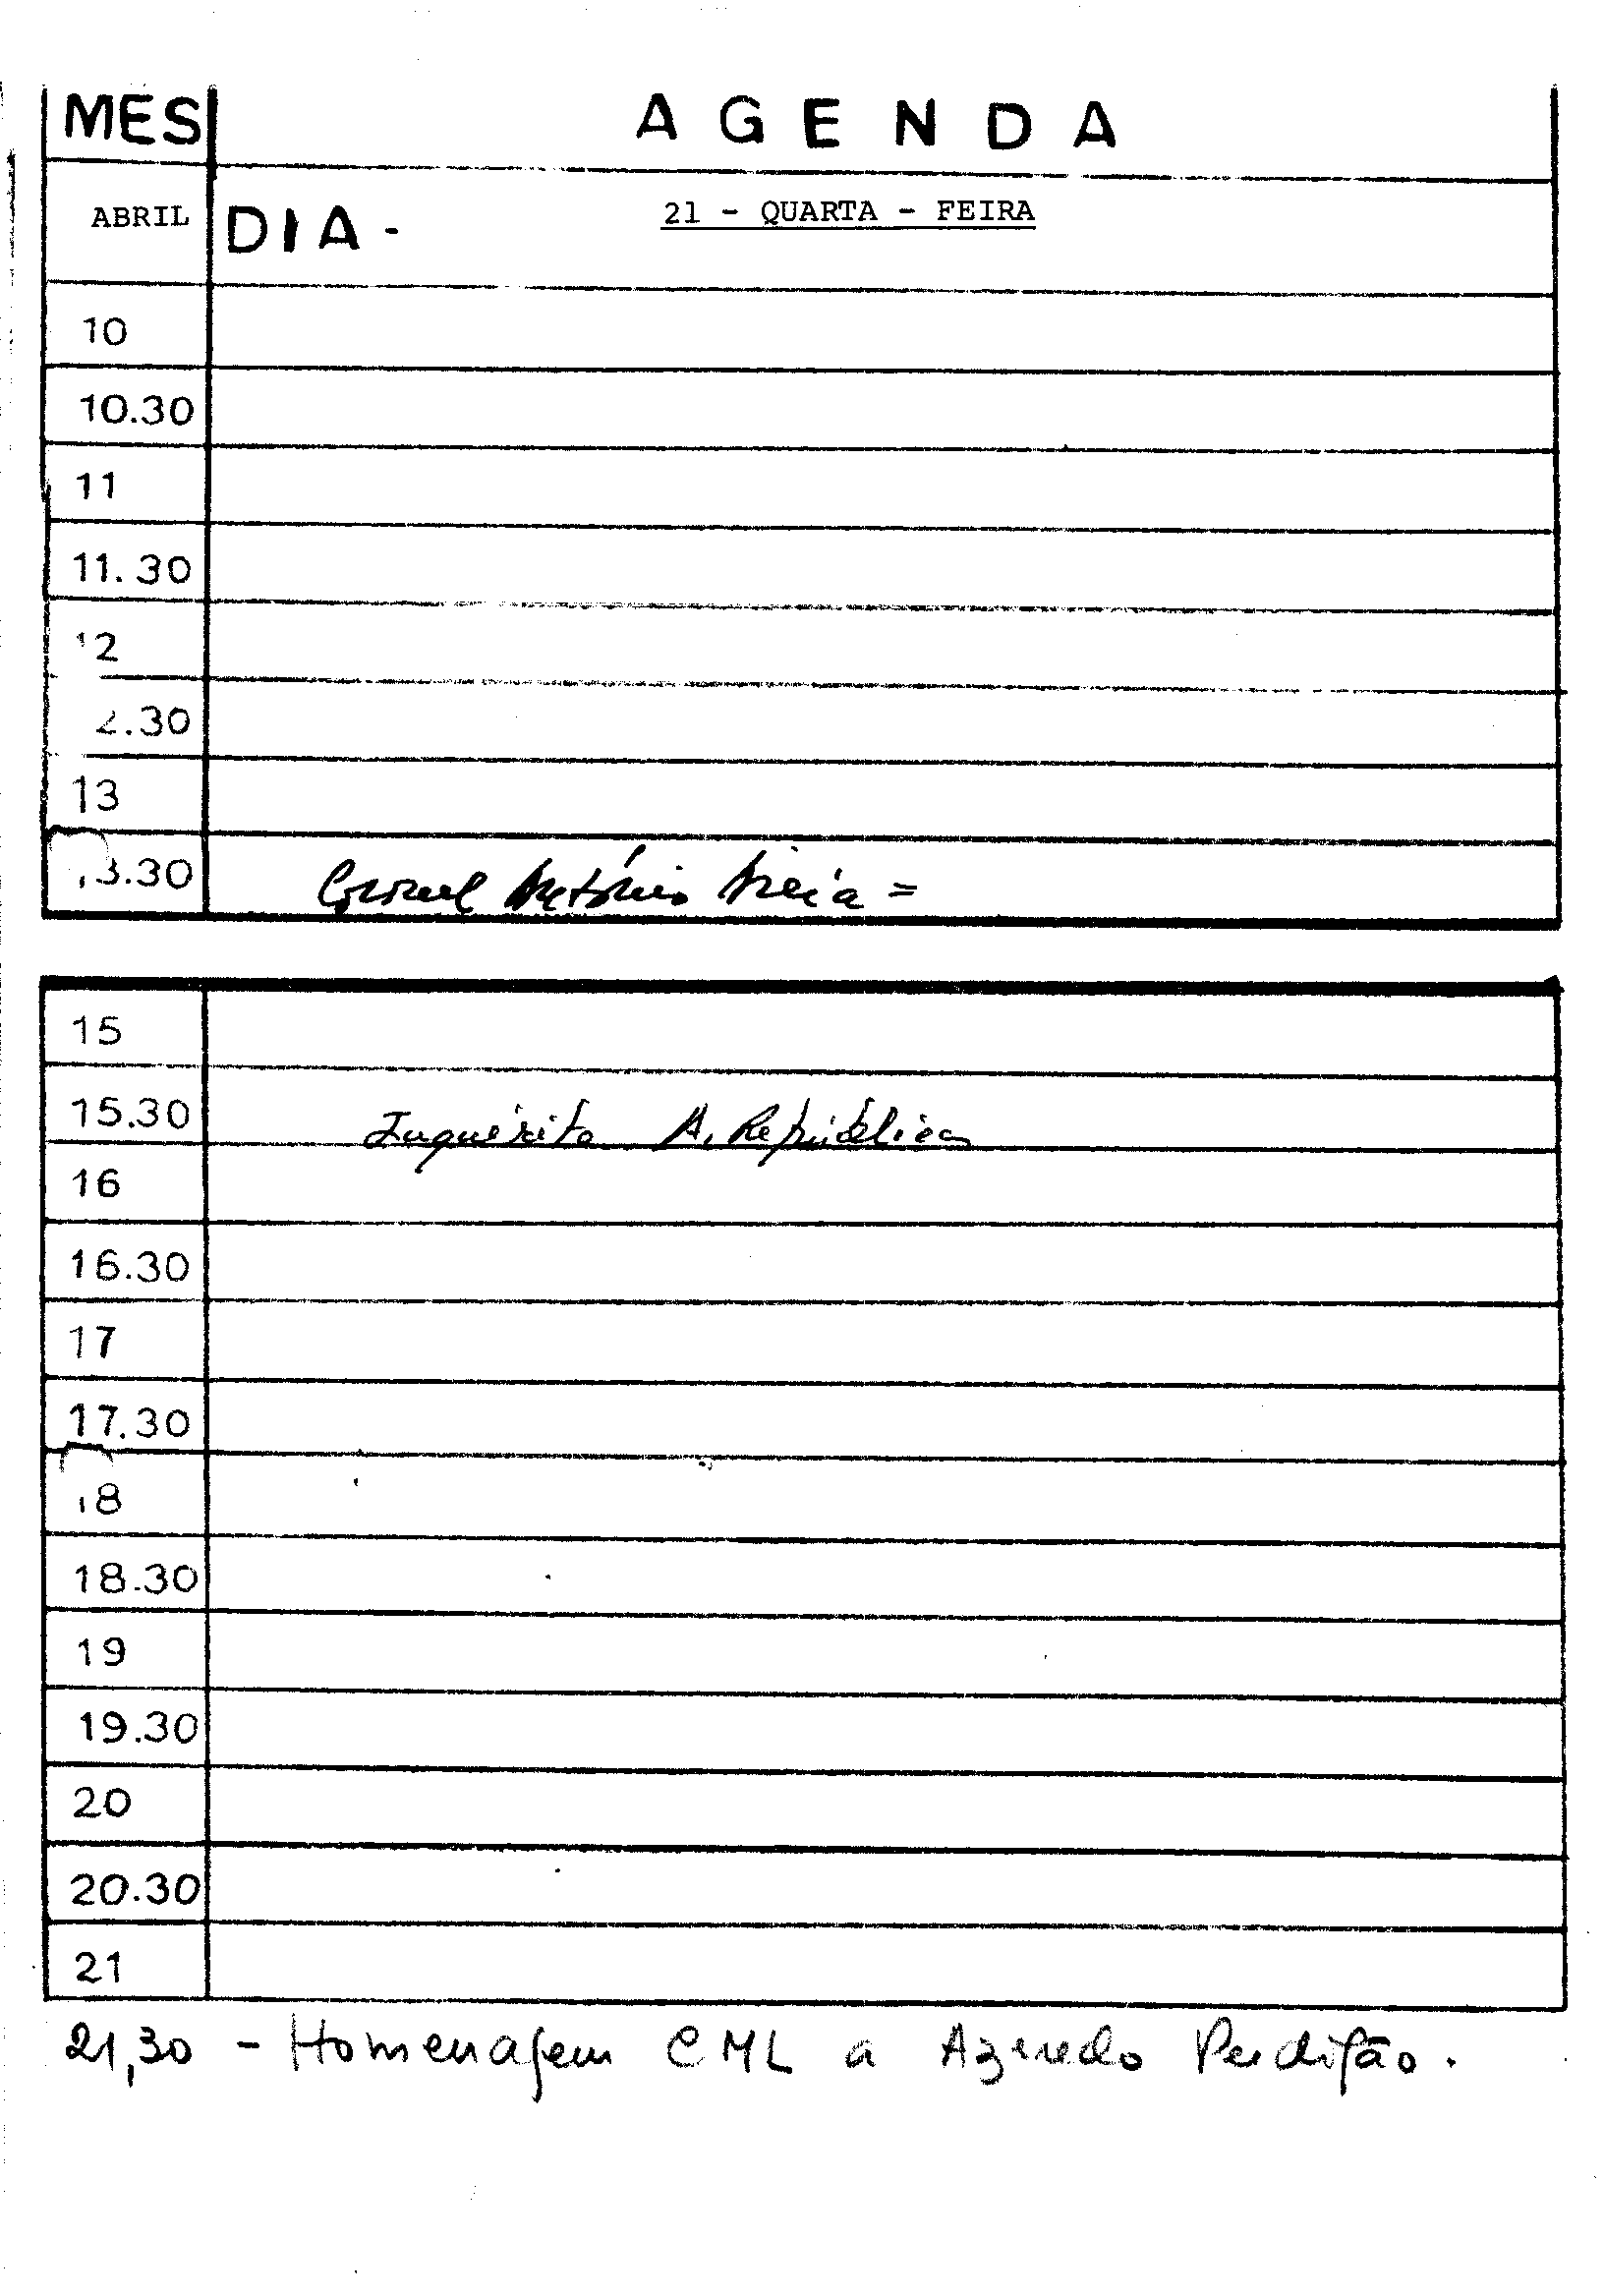 MES AGENDA
ABRIL DIA - 21 - QUARTA - FEIRA
10
10.30
11
11.30
12
2.30
13
13.30 Coronel António Areia =
15
15.30 Inquérito A. República
16
16.30
17
17.30
18
18.30
19
19.30
20
20.30
21
21,30 - Homenagem CML a Azeredo Perdigão.